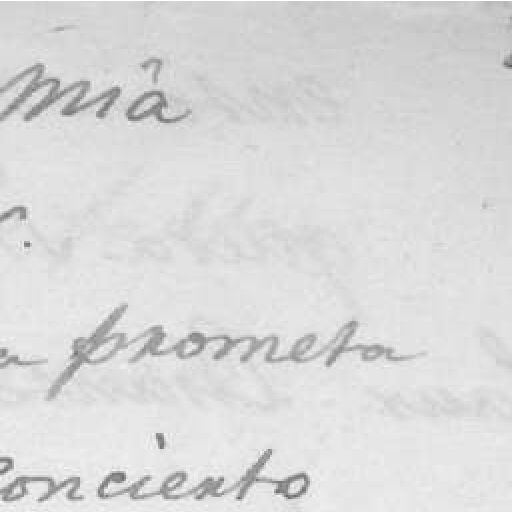 miâ
r.
a prometa
Concierto